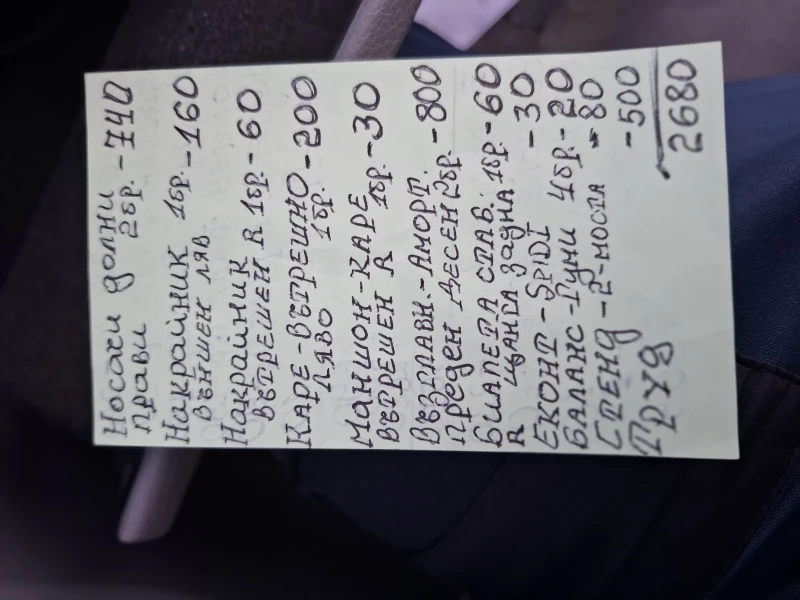 Носачи долни 2бр. -740
прави
Накрайник 1бр. -160
външен ляв.
Накрайник
вътрешен R 1бр. -60
Каре-вътрешно -200
ляво 1бр.
Маншон-каре
вътрешен R 1бр. -30
Възглавн.-Аморт.
преден десен 2бр. -800
Биалета стаб. 1бр. -60
R щанга задна
Еконт-SPIDI -30
Баланс-гуми 4бр. -20
Стенд -2-моста -80
Труд -500
2680